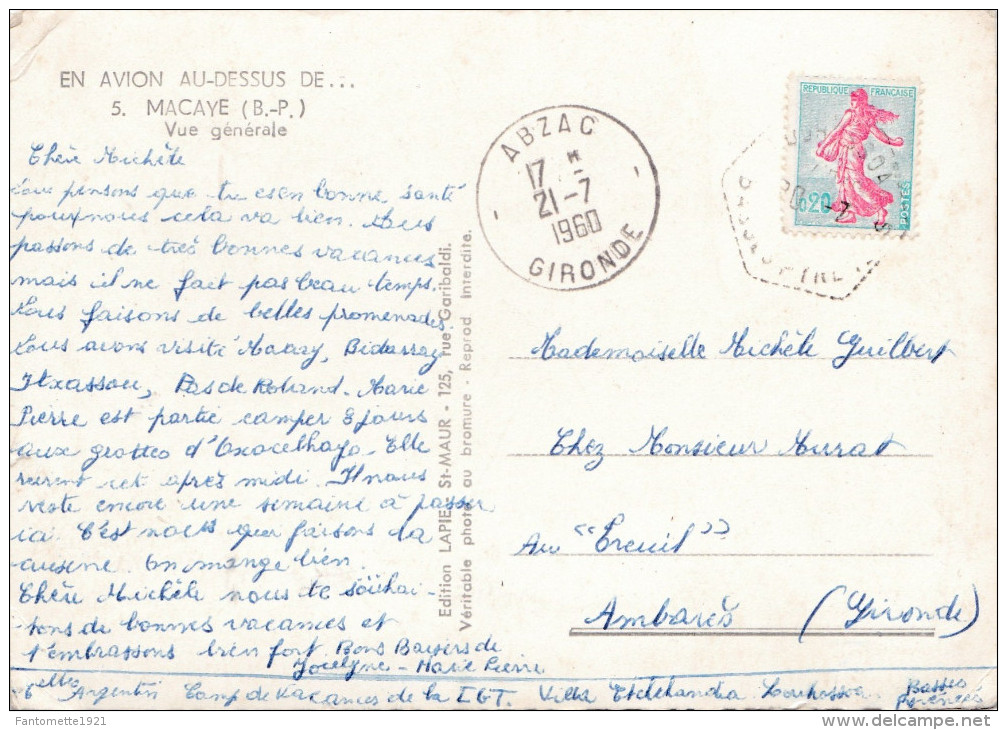 EN AVION AU-DESSUS DE...
5. MACAYE (B.-P.)
Vue générale
Chère Michèle
Nous pensons que tu es en bonne santé
pour nous cela va bien. Nous
passons de très bonnes vacances
mais il ne fait pas beau temps.
Nous faisons de belles promenades.
Nous avons visité Bidarray
Itxassou, Pas de Roland. Marie
Pierre est partie camper 8 jours
aux grottes d'Oxocelhaya. Elle
revient cet après midi. Il nous
reste encore une semaine à passer
ici. C'est nous qui faisons la
cuisine. On mange bien.
Chère Michèle nous te souhai-
tons de bonnes vacances et
t'embrassons bien fort. Bons Baisers de
Jocelyne - Marie Pierre
Edition LAPIE St-MAUR - 125, rue Garibaldi.
Véritable photo au bromure - Reprod Interdite.
ABZAC
17 H
21-7
1960
GIRONDE
REPUBLIQUE FRANÇAISE
0,20
POSTES
Mademoiselle Michèle Guilbert
Chez Monsieur Murat
Au "Treuil"
Ambarès (Gironde)
Argentin Camp de Vacances de la IGT. Villa Etchehandia Louhossoa Basses
Pyrénées
Fantomette1921
www.delcampe.net